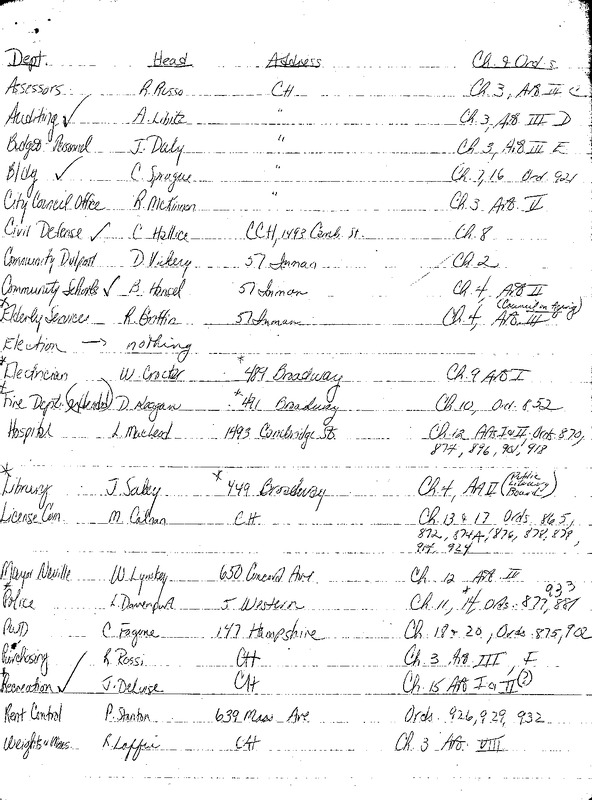 Dept. Head Address Ch. & Ord.s
Assessors R. Russo CH Ch. 3, Art III C
Auditing ✓ A. Libitz " Ch. 3, Art III D
Budget Personnel J. Daly " Ch. 3, Art III E
Bldg ✓ C. Sprague " Ch. 7, 16 Ord. 921
City Council Office R. McKinnon " Ch. 3 Art. II
Civil Defense ✓ C. CCH, 1493 Camb. St. Ch. 8
Community D. Vickery 57 Inman Ch. 2
Community Schools ✓ B. Hensel 57 Inman Ch. 4, Art II
(Council on Aging)
*Elderly Service R. Griffin 57 Inman Ch. 4, Art. III
Election → nothing
*Electrician W. * 489 Broadway Ch. 9 Art I
*Fire Dept. D. Reagan * 491 Broadway Ch. 10, Ord. 852
Hospital L. MacLeod 1493 Cambridge St. Ch. 12 Arts I & II Ords. 870,
874, 896, 901, 918
*Library J. Sakey * 449 Broadway Ch. 4, Art II (Public Library Board)
License Com. M. CH Ch. 13 & 17 Ords. 865,
872, 874A, 876, 878, 879,
924
Mayor Neville W. Lynskey 650 Concord Ave Ch. 12 Art III
933
*Police L. Davenport 5 Western Ch. 11, * 14 Ords. 877, 881
PWD C. 147 Hampshire Ch. 18 & 20, Ords. 875, 902
Purchasing R. Rossi CH Ch. 3 Art III, F
*Recreation ✓ J. DeLuse CH Ch. 15 Art I or II (?)
Rent Control P. Stanton 639 Mass Ave Ords. 926, 929, 932
Weights & Meas. R. CH Ch. 3 Art. VIII